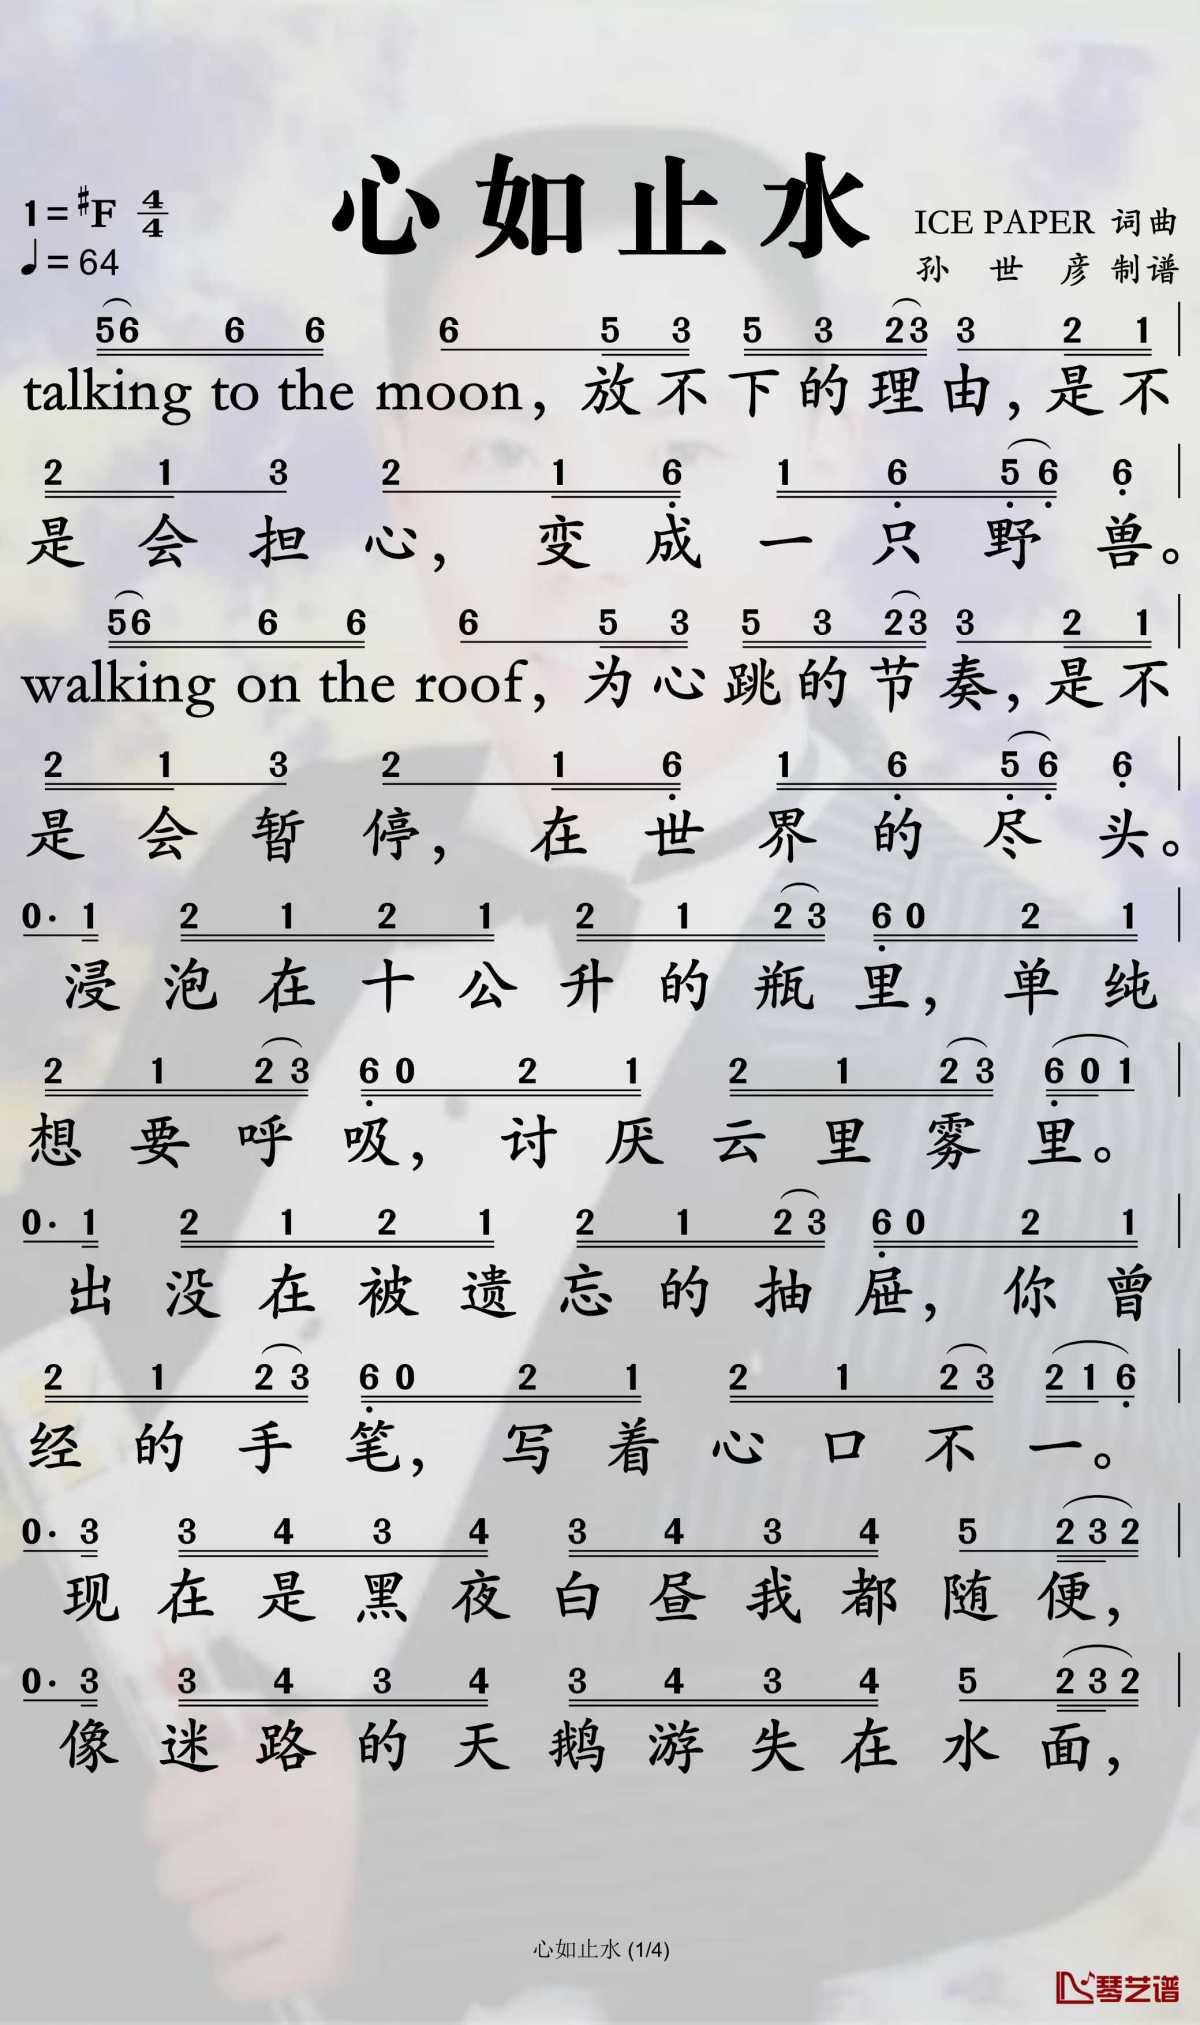 心如止水
1=♯F 4/4
♩=64
ICE PAPER 词曲
孙世彦 制谱
56 6 6 6 5 3 5 3 23 3 2 1
talking to the moon, 放不下的理由, 是不
2 1 3 2 1 6 1 6 5 6 6
是会担心, 变成一只野兽。
56 6 6 6 5 3 5 3 23 3 2 1
walking on the roof, 为心跳的节奏, 是不
2 1 3 2 1 6 1 6 5 6 6
是会暂停, 在世界的尽头。
0· 1 2 1 2 1 2 1 2 3 6 0 2 1
浸泡在十公升的瓶里, 单纯
2 1 2 3 6 0 2 1 2 1 2 3 6 0 1
想要呼吸, 讨厌云里雾里。
0· 1 2 1 2 1 2 1 2 3 6 0 2 1
出没在被遗忘的抽屉, 你曾
2 1 2 3 6 0 2 1 2 1 2 3 2 1 6
经的手笔, 写着心口不一。
0· 3 3 4 3 4 3 4 3 4 5 2 3 2
现在是黑夜白昼我都随便,
0· 3 3 4 3 4 3 4 3 4 5 2 3 2
像迷路的天鹅游失在水面,
心如止水 (1/4)
琴艺谱